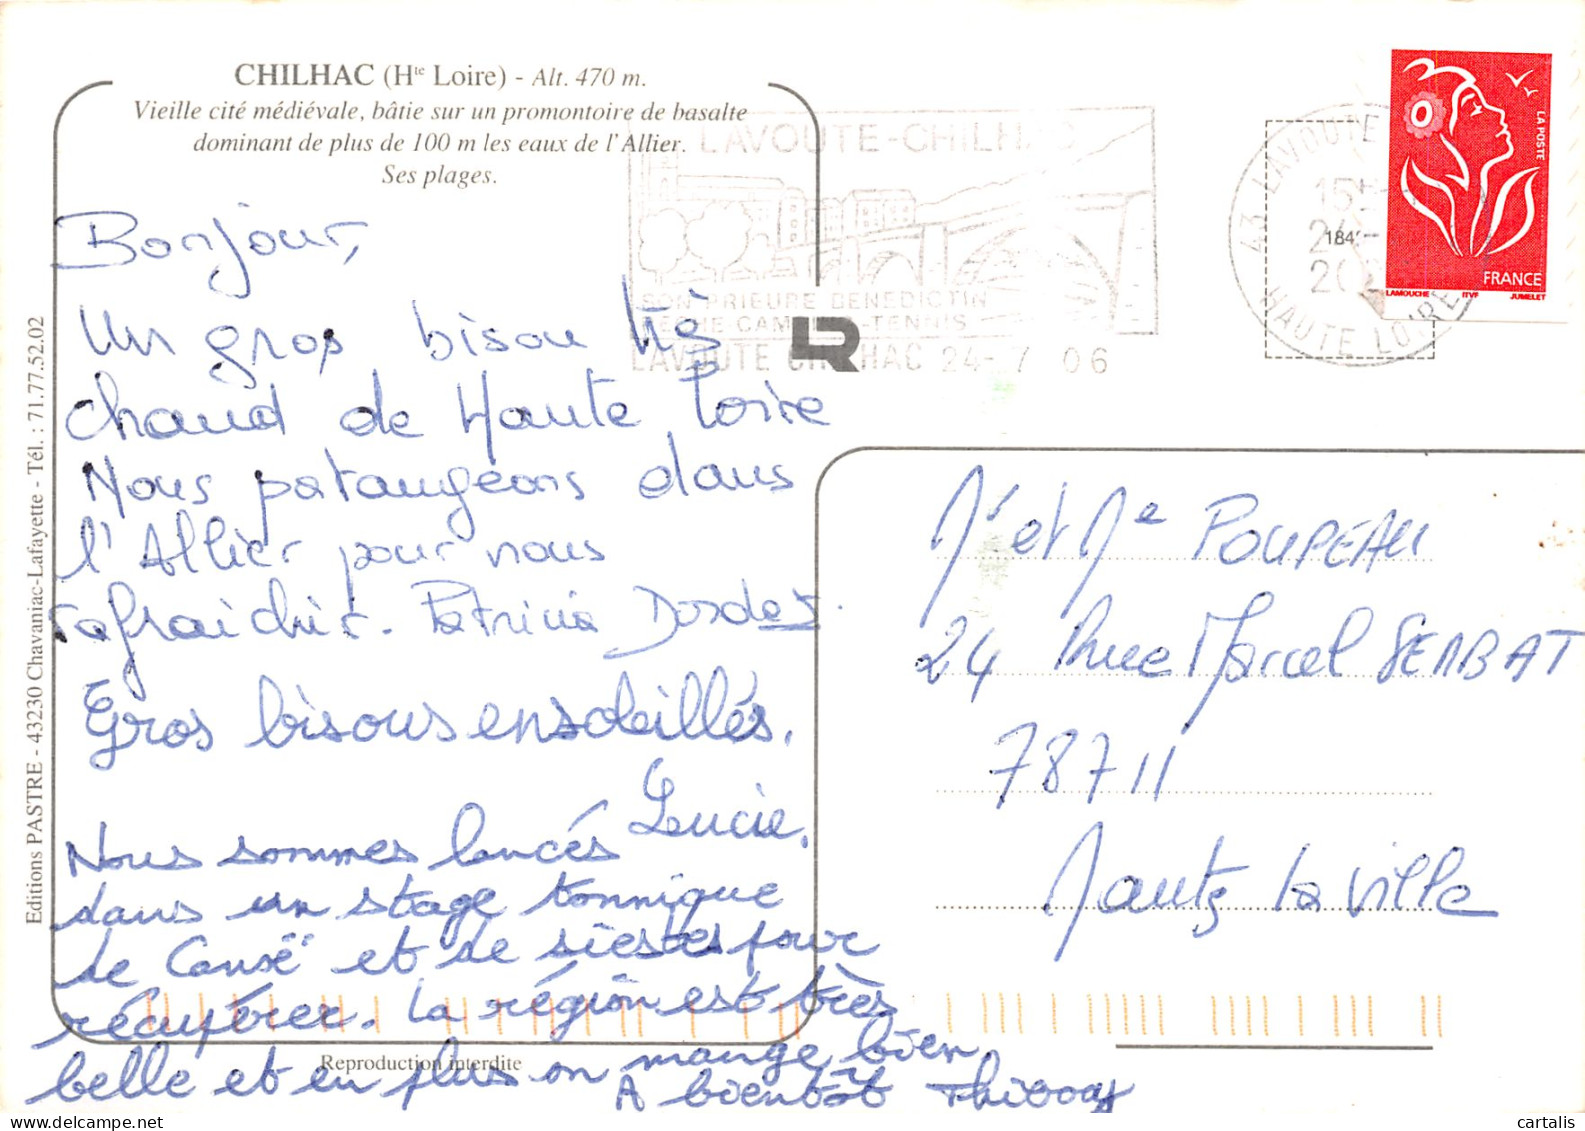 CHILHAC (Hte Loire) - Alt. 470 m.
Vieille cité médiévale, bâtie sur un promontoire de basalte
dominant de plus de 100 m les eaux de l'Allier.
Ses plages.
LAVOUTE-CHILHAC
SON PRIEURE BENEDICTIN
PECHE-CAMPING-TENNIS
LAVOUTE CHILHAC 24-7 06
43 LAVOUTE
15H
24
20
HAUTE LOIRE
184
LA POSTE
FRANCE
LAMOUCHE ITVF JUMELET
Bonjour,
Un gros bisou très
chaud de Haute Loire
Nous pataugeons dans
l'Allier pour nous
rafraichir. Patricia
Gros bisous ensoleillés.
Lucie.
Nous sommes lancés
dans un stage tonnique
de Canoë et de siestes pour
récupérer. La région est très
belle et en plus on mange bien
A bientôt
Mr et Me POUPEAU
24 Rue Marcel SERBAT
78711
Mantes la Ville
Editions PASTRE - 43230 Chavaniac-Lafayette - Tél. : 71.77.52.02
Reproduction interdite
cartalis